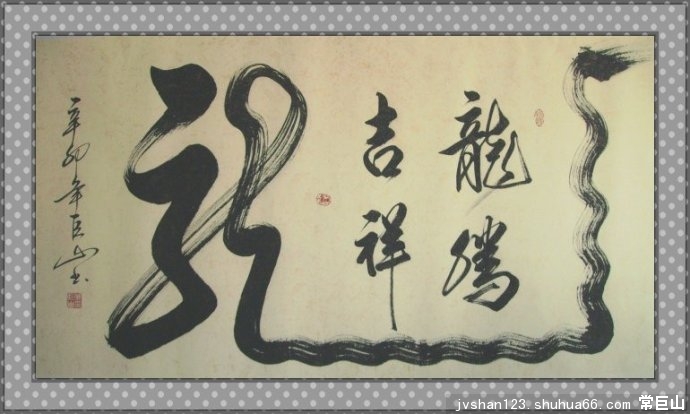 龍騰
吉祥
龍
辛卯年巨山书
jvshan123.shuhua66.com 常巨山